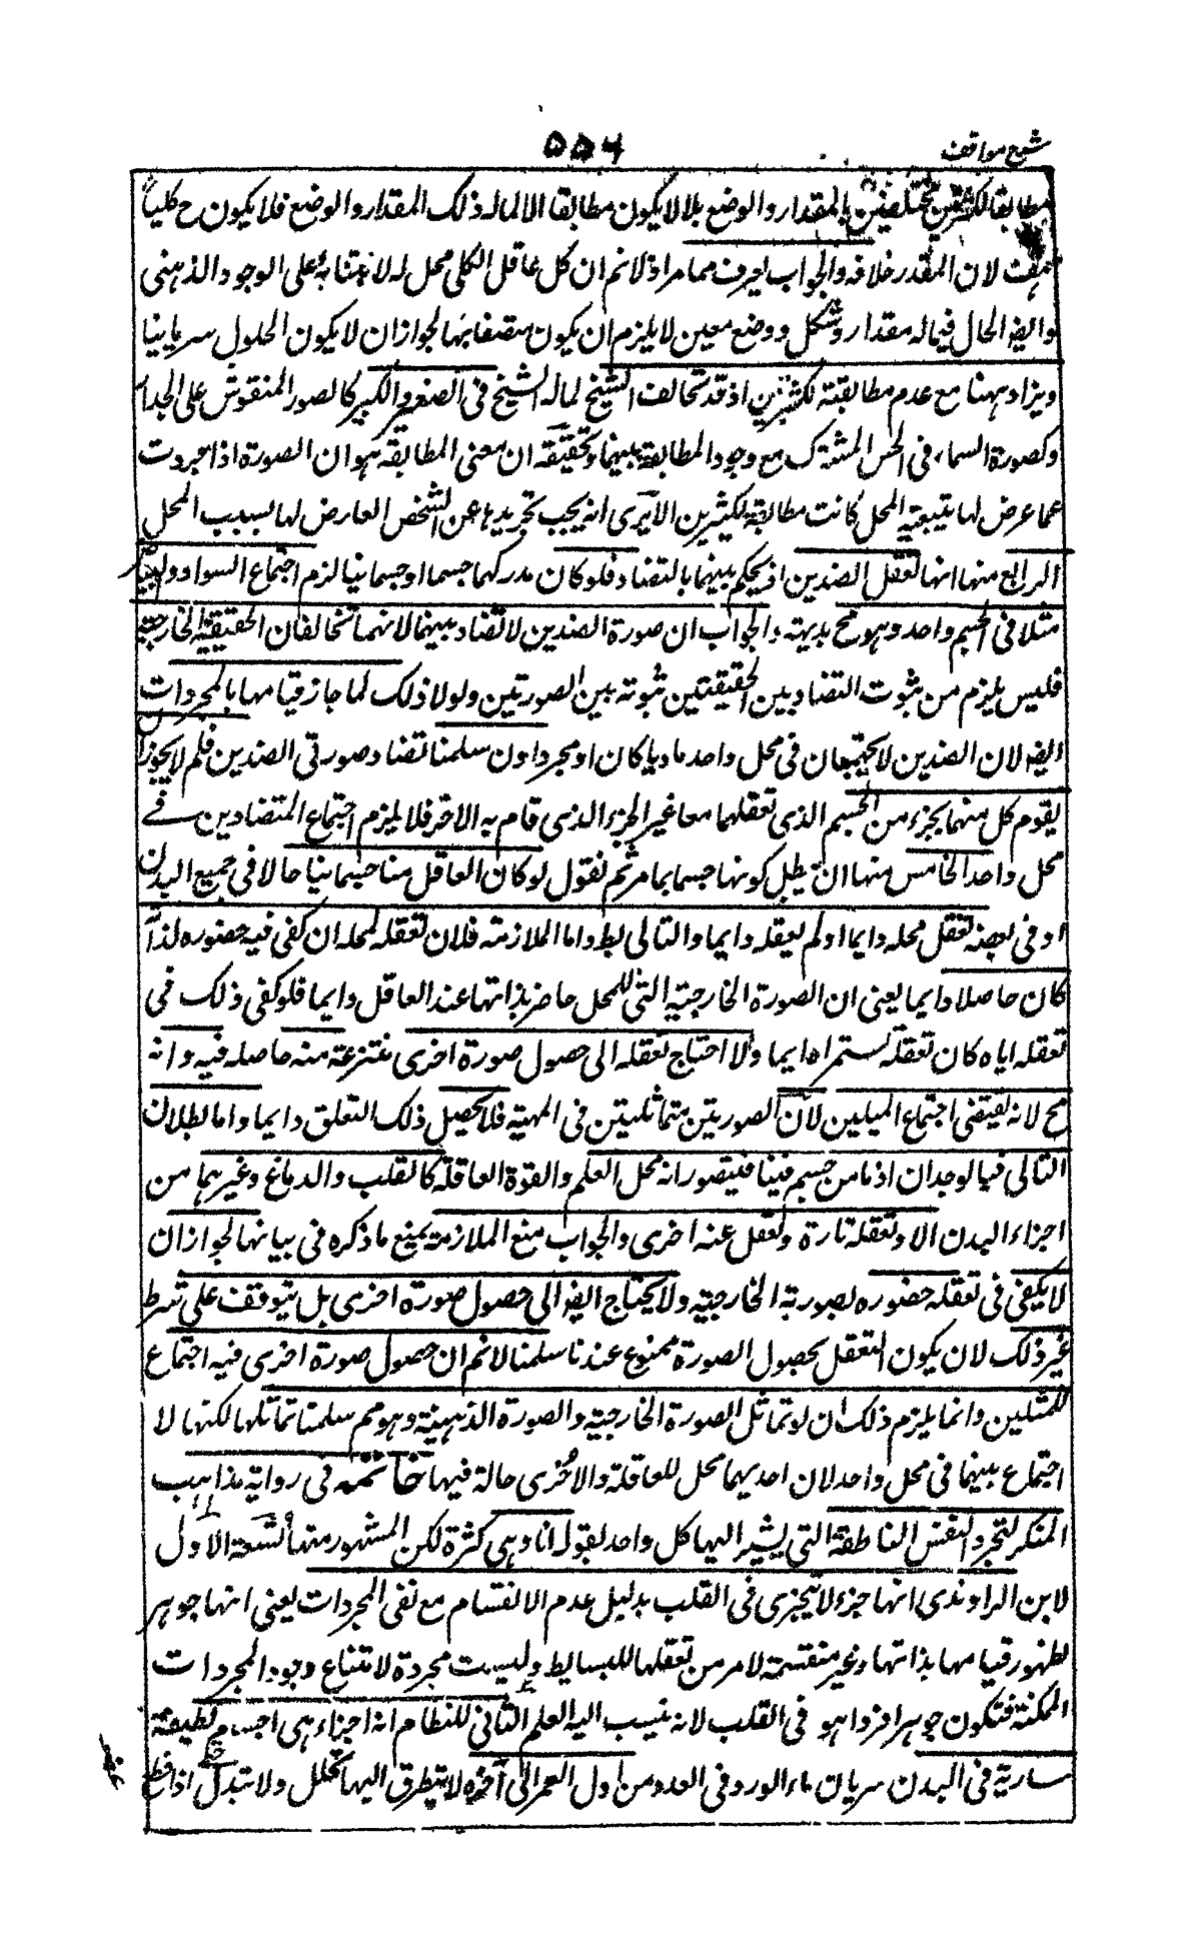 شرح مواقف
٥٥٦
مطابقا لكثيرين مختلفين بالمقدار والوضع بل لا يكون مطابقا الا لماله ذلك المقدار والوضع فلا يكون ح كليا
هف لان المقدر خلافه والجواب يعرف مما مر اذ لا نم ان كل عاقل الكلي محل له لابتنائه على الوجود الذهني
وايضا الحال فيما له مقدار وشكل ووضع معين لا يلزم ان يكون متصفا بها لجواز ان لا يكون الحلول سريانيا
ويزاد ههنا منع عدم مطابقته لكثيرين اذ قد تخالف الشبح لماله الشبح في الصغر والكبر كالصور المنقوش على الجدار
وكصورة السماء في الحس المشترك مع وجود المطابقة بينهما وتحقيقه ان معنى المطابقة هو ان الصورة اذا جردت
عما عرض لها بتبعية المحل كانت مطابقة لكثيرين الا يرى انه يجب تجريدها عن التشخص العارض لها بسبب المحل
الرابع منها انها تعقل الضدين اذ يحكم بينهما بالتضاد فلو كان مدركهما جسما او جسمانيا لزم اجتماع السواد والبياض
مثلا في الجسم واحد وهو مح بديهة والجواب ان صورة الضدين لا تضاد بينهما لانهما تخالفان الحقيقية الخارجية
فليس يلزم من ثبوت التضاد بين الحقيقتين ثبوته بين الصورتين ولولا ذلك لما جاز قيامها بالمجردات
ايضا لان الضدين لا يجتمعان في محل واحد ماديا كان او مجردا ون سلمنا تضاد صورتي الضدين فلم لا يجوز ان
يقوم كل منهما بجزء من الجسم الذي تعقلهما معا غير الجزء الذي قام به الاخر فلا يلزم اجتماع المتضادين في
محل واحد الخامس منها ان يطل كونها جسما بما مر ثم نقول لو كان العاقل منا جسمانيا حالا في جميع البدن
او في بعضه تعقل محله دايما او لم يعقله دايما والتالى بط واما الملازمة فلان تعقله لمحله ان كفى فيه حضوره لذاته
كان حاصلا دايما يعني ان الصورة الخارجية التي للمحل حاضر بذاتها عند العاقل دايما فلو كفى ذلك في
تعقله اياه كان تعقله مستمرا دايما والا احتاج تعقله الى حصول صورة اخرى منتزعة منه حاصله فيه وانه
مح لانه يقتضى اجتماع المثلين لان الصورتين متماثلتين في المهية فلا يحصل ذلك التعلق دايما واما بطلان
التالى فبالوجدان اذ ما من جسم فينا فيتصور انه محل العلم والقوة العاقلة كالقلب والدماغ وغيرهما من
اجزاء البدن الا ونعقله تارة ونغفل عنه اخرى والجواب منع الملازمة بمنع ما ذكره في بيانها لجواز ان
لا يكفى في تعقله حضوره بصورته الخارجية ولا يحتاج ايضا الى حصول صورة اخرى بل يتوقف على شرط
غير ذلك لان يكون التعقل بحصول الصورة ممنوع عندنا سلمنا لا نم ان حصول صورة اخرى فيه اجتماع
للمثلين وانما يلزم ذلك ان لو تماثل الصورة الخارجية والصورة الذهنية وهو مم سلمنا تماثلها لكنها لا
اجتماع بينهما في محل واحد لان احديهما محل للعاقلة والاخرى حالة فيها خاتمه في رواية مذاهب
المنكر لتجرد النفس الناطقة التي يشير اليها كل واحد بقوله انا وهى كثرة لكن المشهور منها تسعة الاول
لابن الراوندى انها جزء لا يتجزى في القلب بدليل عدم الانقسام مع نفى المجردات يعنى انها جوهر
لظهور قيامها بذاتها وغير منقسمة لا مر من تعقلها للبسايط وليست مجردة لامتناع وجود المجردات
الممكنة فتكون جوهرا فردا هو في القلب لانه ينسب اليه العلم الثاني للنظام انه اجزاء هى اجسام لطيفة
سارية في البدن سريان ماء الورد في الورد من اول العمر الى آخره لا يتطرق اليها تحلل ولا تبدل حتى اذا قطع